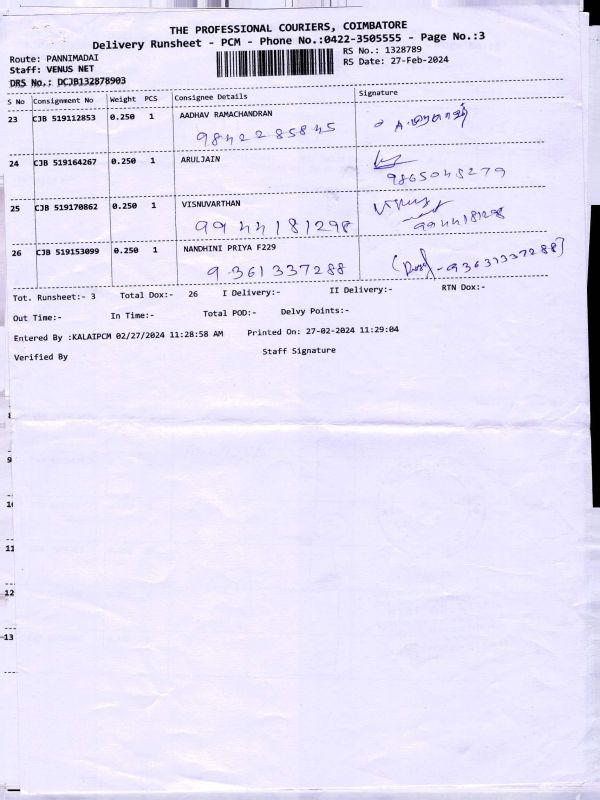 THE PROFESSIONAL COURIERS, COIMBATORE
Delivery Runsheet - PCM - Phone No.:0422-3505555 - Page No.:3
Route: PANNIMADAI
RS No.: 1328789
Staff: VENUS NET
RS Date: 27-Feb-2024
DRS No.: DCJB132878903
S No Consignment No Weight PCS Consignee Details Signature
23 CJB 519112853 0.250 1 AADHAV RAMACHANDRAN
9842285845
24 CJB 519164267 0.250 1 ARULJAIN
9865048279
25 CJB 519170862 0.250 1 VISNUVARTHAN
9944181298 9944181298
26 CJB 519153099 0.250 1 NANDHINI PRIYA F229
9361337288 -9363137288)
Tot. Runsheet:- 3 Total Dox:- 26 I Delivery:- II Delivery:- RTN Dox:-
Out Time:- In Time:- Total POD:- Delvy Points:-
Entered By :KALAIPCM 02/27/2024 11:28:58 AM Printed On: 27-02-2024 11:29:04
Verified By Staff Signature
9
11
12
-13